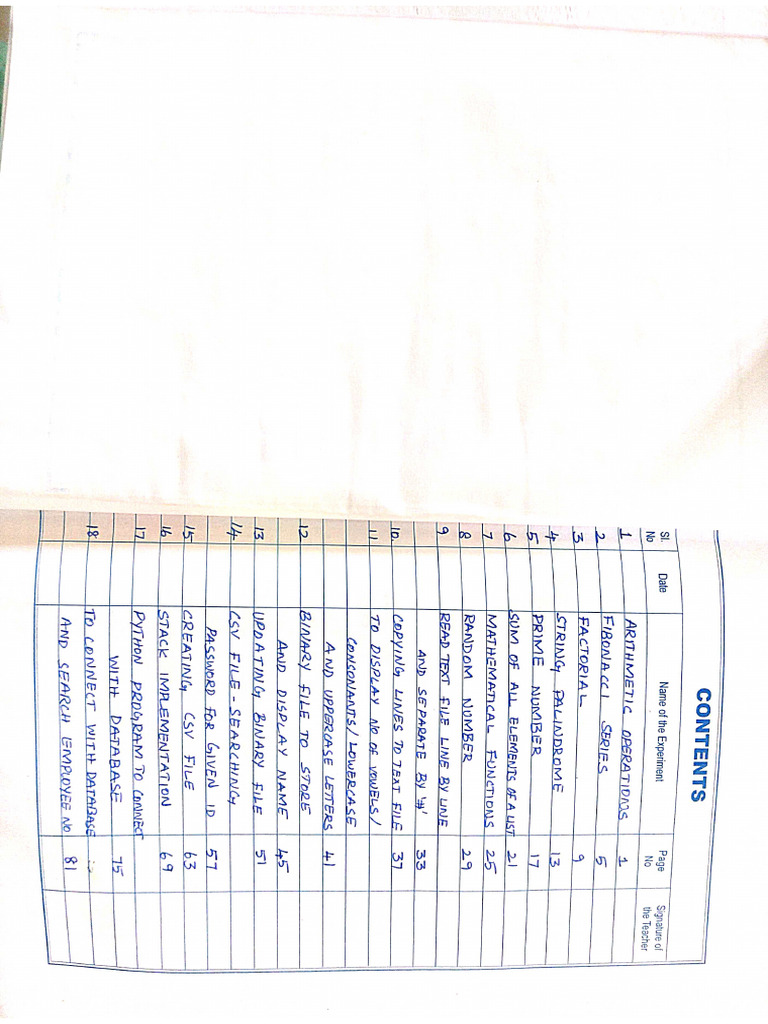 CONTENTS
Sl. No Date Name of the Experiment Page No Signature of the Teacher
1 ARITHMETIC OPERATIONS 1
2 FIBONACCI SERIES 5
3 FACTORIAL 9
4 STRING PALINDROME 13
5 PRIME NUMBER 17
6 SUM OF ALL ELEMENTS OF A LIST 21
7 MATHEMATICAL FUNCTIONS 25
8 RANDOM NUMBER 29
9 READ TEXT FILE LINE BY LINE
AND SEPARATE BY '#' 33
10. COPYING LINES TO TEXT FILE 37
11 TO DISPLAY NO OF VOWELS/
CONSONANTS/LOWERCASE
AND UPPERCASE LETTERS 41
12 BINARY FILE TO STORE
AND DISPLAY NAME 45
13 UPDATING BINARY FILE 51
14 CSV FILE - SEARCHING
PASSWORD FOR GIVEN ID 57
15 CREATING CSV FILE 63
16 STACK IMPLEMENTATION 69
17 PYTHON PROGRAM TO CONNECT
WITH DATABASE 75
18 TO CONNECT WITH DATABASE
AND SEARCH EMPLOYEE NO 81